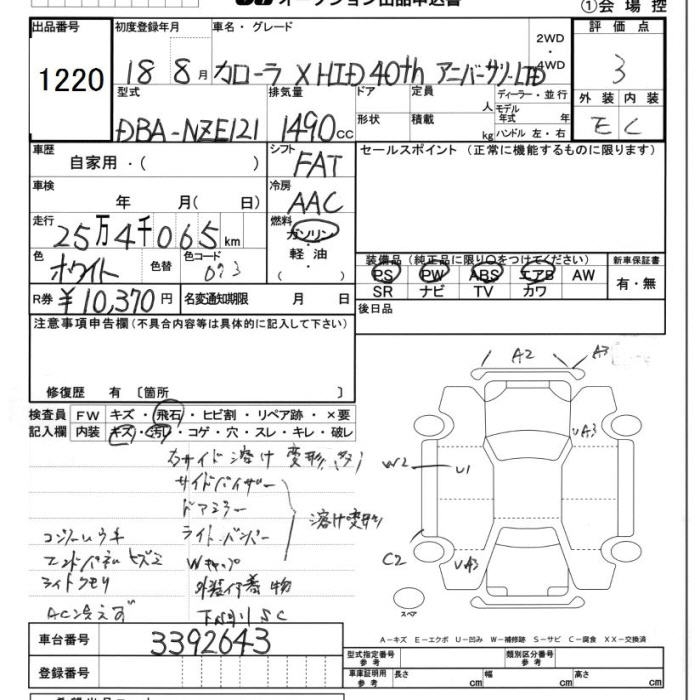 オークション出品申込書
①会場控
出品番号 初度登録年月 車名・グレード 2WD・4WD 評価点
1220 18 8月 カローラ X HID 40th アニバーサリーLTD 3
型式 排気量 ドア 定員 人 ディーラー・並行 外装 内装
DBA-NZE121 1490cc 形状 積載 kg モデル年式 年 ハンドル 左・右 E C
車歴 シフト セールスポイント (正常に機能するものに限ります)
自家用・( ) FAT
車検 冷房
年 月( 日) AAC
走行 燃料
25万4千065km ガソリン・軽油・( )
色 色替 色コード 装備品 (純正品に限り○をつけてください) 新車保証書
ホワイト 073 PS PW ABS エアB AW 有・無
SR ナビ TV カワ
R券 ¥10,370円 名変通知期限 月 日 後日品
注意事項申告欄(不具合内容等は具体的に記入して下さい)
修復歴 有 〔箇所 〕
検査員 FW キズ・飛石・ヒビ割・リペア跡・×要
記入欄 内装 キズ・汚・コゲ・穴・スレ・キレ・破レ
右サイド溶け 変形
サイドバイザー
ドアミラー
ライト・バンパー 溶け変形
Wキャップ
ライトクモリ
A2 A3
UA3
W2 U1
C2 UA3
スペア
A-キズ E-エクボ U-凹み W-補修跡 S-サビ C-腐食 XX-交換済
車台番号 3392643 型式指定番号 参考 類別区分番号 参考
登録番号 車庫証明用 参考 長さ cm 幅 cm 高さ cm